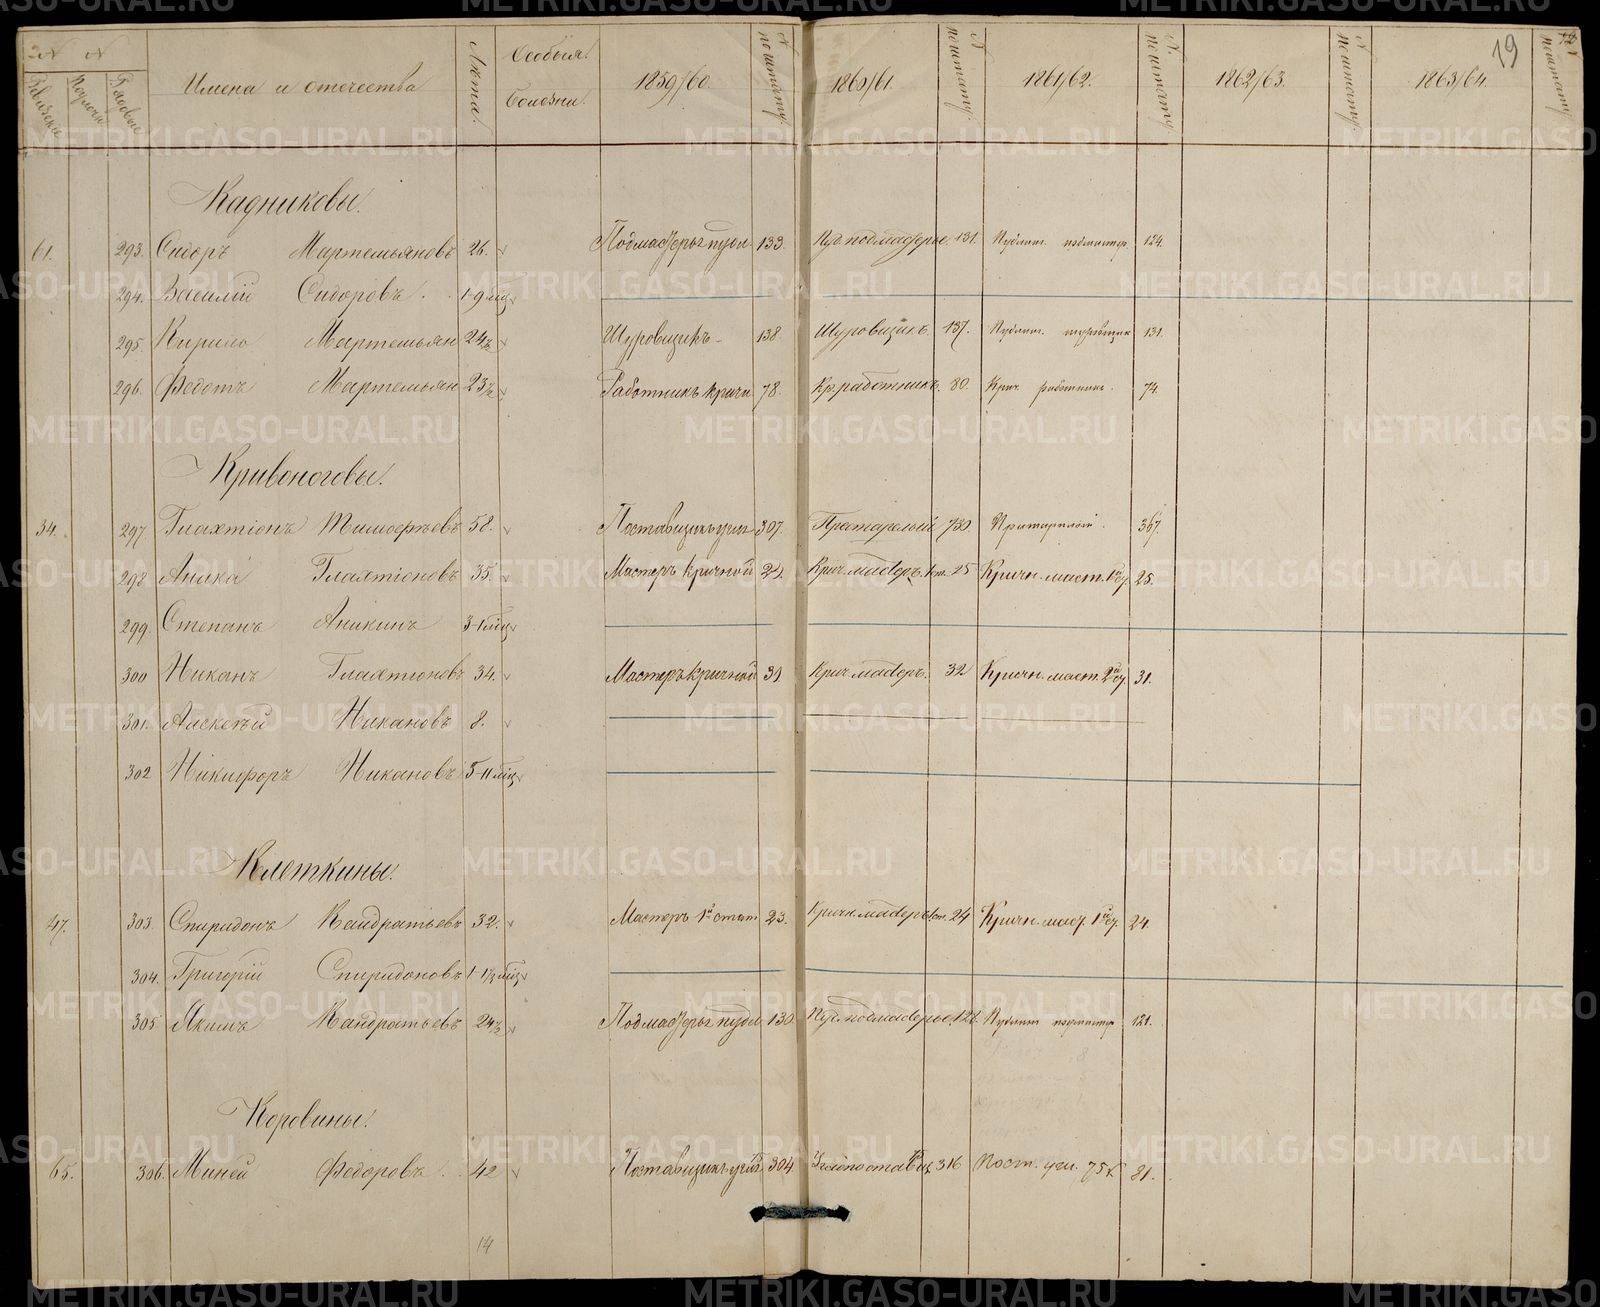 № № Имена и отечества Лѣта Особыя Болезни 1859/60. № по штату 1860/61. № по штату 1861/62. № по штату 1862/63. № по штату 1863/64. № по штату 19
Кадниковы.
61. 293. Сидоръ Мартемьяновъ 26. Подмастерье пудл 133. Пуд. подмастерье. 131. Пудлинг. подмастер. 124.
294. Василій Сидоровъ. 1-9 мѣц
295. Кирило Мартемьян 24½ Шуровщикъ 138. Шуровщикъ 137. Пудлинг. шуровщик 131.
296. Федотъ Мартемьян 23½ Работникъ кричн 78. Кр. работникъ. 80. Крич. работник. 74.
Кривоноговы.
34. 297. Глахтіонъ Тимофѣевъ 58. Поставщикъ угля 307. Престарелый 730. Престарелый. 367.
298. Аника Глахтіоновъ 35. Мастеръ кричной 24. Крич. мастеръ 1 ст. 25 Кричн. маст. 1й ст. 25.
299. Степанъ Аникинъ 3-1 мѣц
300 Никанъ Глахтионовъ 34. Мастеръ кричной 31. Крич. мастеръ. 32 Кричн. маст. 2й ст. 31.
301. Алексѣй Никановъ 8.
302 Никифоръ Никановъ 5-11 мѣц
Клеткины.
47. 303. Спиридонъ Кандратьевъ 32. Мастеръ 1й стат 23. Кричн. мастеръ 1 ст. 24 Кричн. маст. 1й ст. 24.
304. Григорій Спиридоновъ 1-1½ мѣц
305 Якимъ Кандратьевъ 24½ Подмастерье пудл 130 Пуд. подмастерье. 128. Пудлинг подмастер. 121.
Коровины.
65. 306. Миней Федоровъ. 42 Поставщикъ угля 304 Углепоставщ 316 Пост. угл. 75 к. 81.
14
METRIKI.GASO-URAL.RU